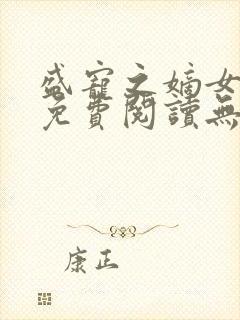 盛寵之嫡女
免費閱讀無
康正